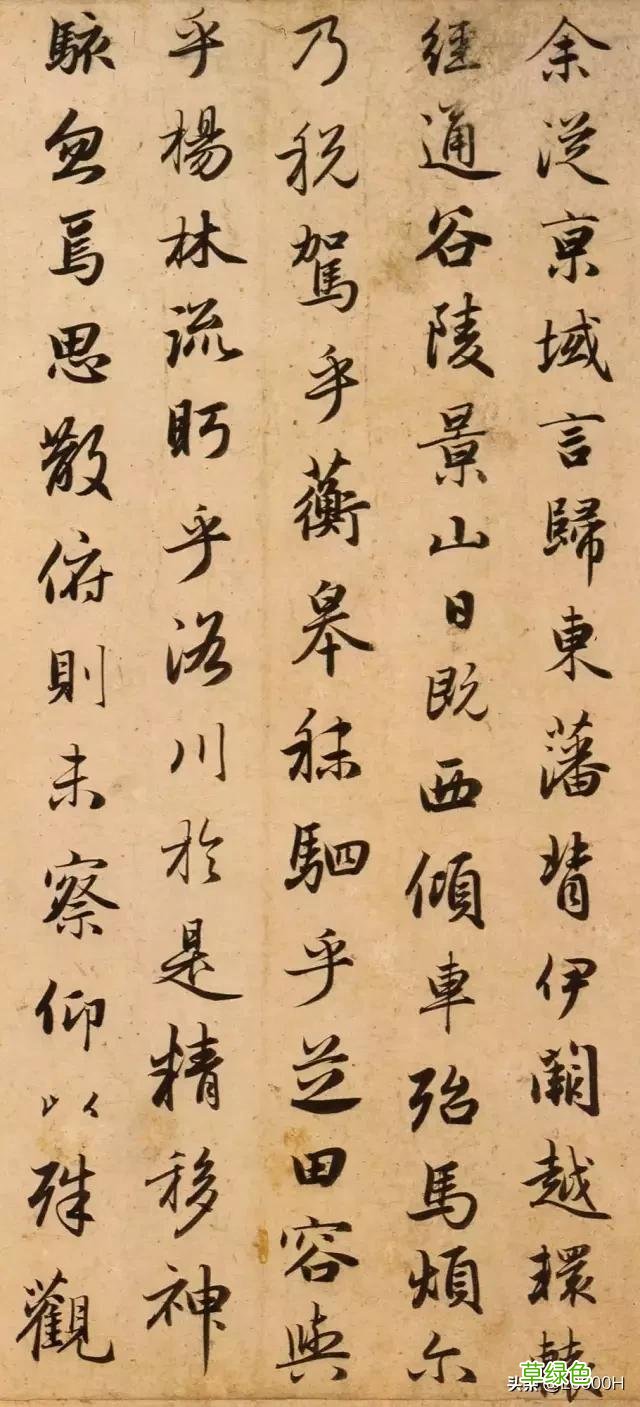 余從京域言歸東藩背伊闕越轘轅
經通谷陵景山日既西傾車殆馬煩尔
乃税駕乎蘅皋秣駟乎芝田容與
乎楊林流眄乎洛川於是精移神
駭忽焉思散俯則未察仰以殊觀
草绿色
头条@